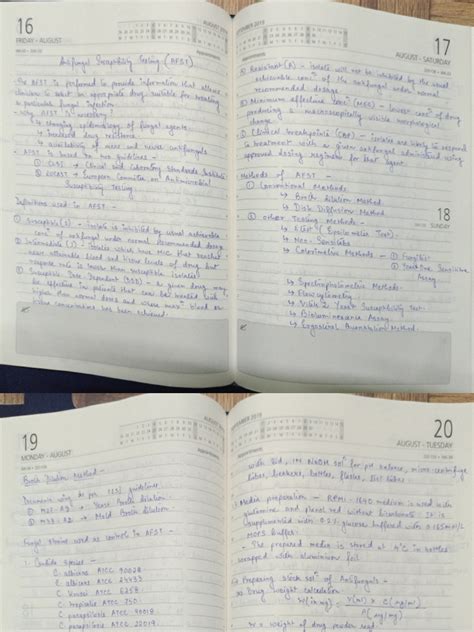 16
FRIDAY - AUGUST
AUGUST
Antifungal Susceptibility Testing (AFST)
AFST is performed to provide information that allows
clinician to select an appropriate drug suitable for treating
a particular fungal infection
why AFST is necessary?
↳ changing epidemiology of fungal agents
↳ increased drug resistance
↳ availability of more and newer antifungals
AFST is based on two guidelines -
① CLSI → Clinical and Laboratory Standards Institute
② EUCAST → European Committee on Antimicrobial
Susceptibility Testing
Definitions used in AFST -
① Susceptible (S) - Isolate is inhibited by usual achievable
concⁿ of antifungal under normal recommended dosage
② Intermediate (I) - Isolates which have MIC that
attainable blood and tissue levels of drug, but
response rate is more than susceptible isolates
③ Susceptible Dose Dependent (SDD) - a given drug may
be effective in patients that can be treated with
higher than normal doses and whose blood or
tissue concentration has been achieved.
2019
17
AUGUST - SATURDAY
Appointments
④ Resistant (R) - isolate will not be inhibited by the usual
achievable concⁿ of the antifungal under normal
recommended dosage
⑤ Minimum effective concⁿ (MEC) - lowest concⁿ of drug
producing a macroscopically visible morphological
change
⑥ Clinical breakpoints - isolates are likely to respond
to treatment with a given antifungal administered using
approved dosing regimens for that agent.
Methods of AFST -
① Conventional Methods
↳ Broth Dilution Method
↳ Disk Diffusion Method
18
SUNDAY
② Other Testing Methods -
↳ E Test (Epsilometer Test)
↳ Neo-Sensitabs
↳ Colorimetric Methods - ① Fungitest
② Sensititre
Assay
↳ Spectrophotometric Methods
↳ Flow cytometry
↳ Vitek 2 Yeast Susceptibility Test
↳ Bioluminescence Assay
↳ Ergosterol Quantitation Method
19
MONDAY - AUGUST
AUGUST
Broth Dilution Method -
Documents using as per CLSI guidelines
① M27-A2 → Yeast Broth Dilution
② M38-A2 → Mold Broth Dilution
Fungal strains used as controls in AFST -
1. Candida species -
C. albicans ATCC 90028
C. albicans ATCC 24433
C. krusei ATCC 6258
C. tropicalis ATCC 750
C. parapsilosis ATCC 90018
C. parapsilosis ATCC 22019
2019
20
AUGUST - TUESDAY
Appointments
with lid, 1N NaOH solⁿ for pH balance, micro centrifuge
tubes, beakers, bottles, flasks, test tubes
Media preparation - RPMI-1640 medium is used with
glutamine and phenol red without bicarbonate. It is
supplemented with 0.2% glucose buffered with 0.165 mol/L
MOPS buffer.
The prepared media is stored at 4°C in bottles
wrapped with aluminium foil
Preparing stock solⁿ of Antifungals -
Drug weight calculation
W (mg) = V(ml) x C (mg/ml)
A (mg/mg)
W = weight of drug powder reqd